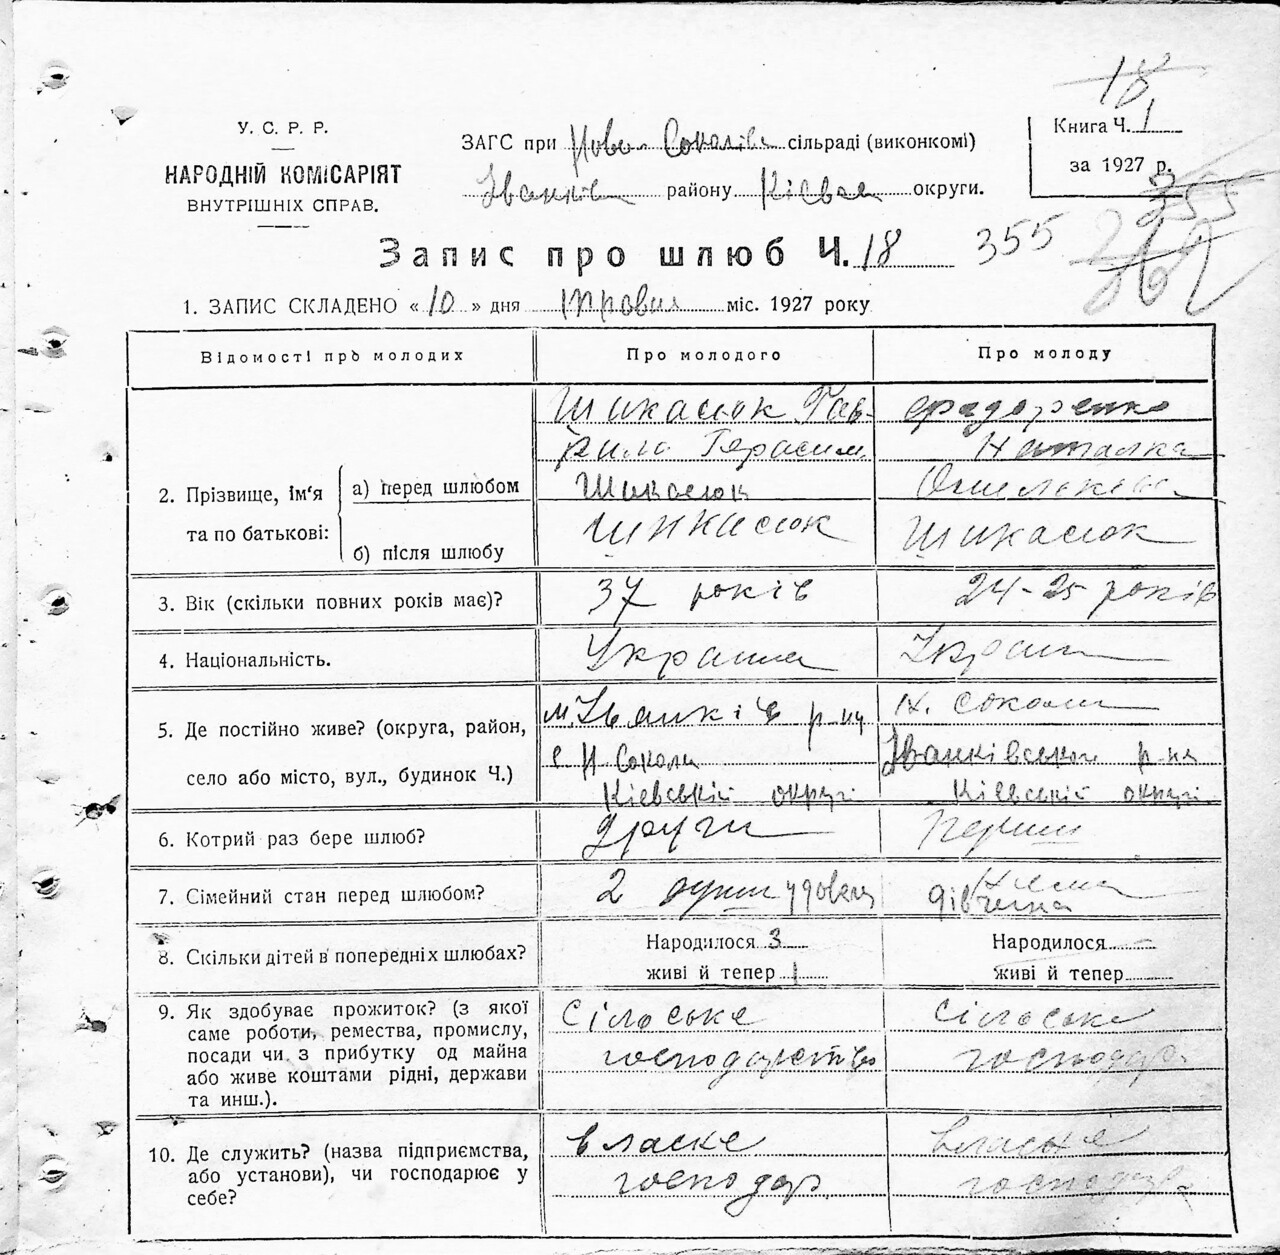 18
У. С. Р. Р.
НАРОДНІЙ КОМІСАРІЯТ
ВНУТРІШНІХ СПРАВ.
ЗАГС при Ново-Соколів сільраді (виконкомі)
Іванків району Київськ округи.
Книга Ч. 1
за 1927 р.
355
Запис про шлюб Ч. 18
355
1. ЗАПИС СКЛАДЕНО « 10 » дня травня міс. 1927 року
Відомості про молодих
Про молодого
Про молоду
2. Прізвище, ім'я та по батькові:
а) перед шлюбом
б) після шлюбу
Шикасюк Гав-
рило Герасим
Шикасюк
Шикасюк
Наталка
Шикасюк
3. Вік (скільки повних років має)?
37 років
24-25 років
4. Національність.
Українец
Україн
5. Де постійно живе? (округа, район,
село або місто, вул., будинок Ч.)
м. Іванків р-ну
с Н Соколи
Київській округі
Н. Соколи
Іванківського р-на
Київській округі
6. Котрий раз бере шлюб?
Други
Перши
7. Сімейний стан перед шлюбом?
2 души удовец
дівчина
8. Скільки дітей в попередніх шлюбах?
Народилося 3
живі й тепер 1
Народилося —
живі й тепер —
9. Як здобуває прожиток? (з якої
саме роботи, ремества, промислу,
посади чи з прибутку од майна
або живе коштами рідні, держави
та инш.).
Сілоське
господарство
Сілоське
господар
10. Де служить? (назва підприємства,
або установи), чи господарює у
себе?
власке
господар
власке
господар